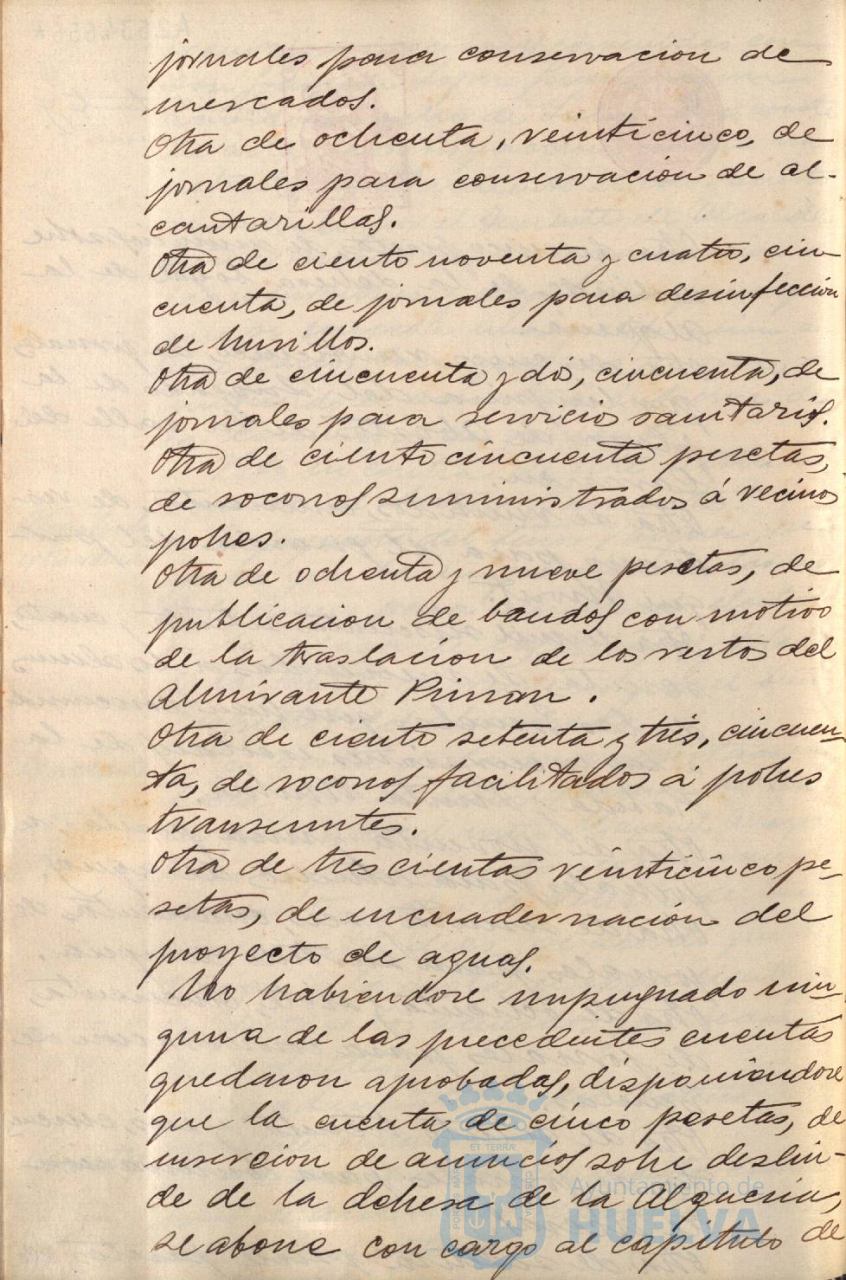 jornales para conservacion de
mercados.
Otra de ochenta, veinticinco, de
jornales para conservación de al-
cantarillas.
Otra de ciento noventa y cuatro, cin
cuenta, de jornales para desinfección
de husillos.
Otra de cincuenta y dos, cincuenta, de
jornales para servicios sanitarios.
Otra de ciento cincuenta pesetas,
de socorros suministrados á vecinos
pobres.
Otra de ochenta y nueve pesetas, de
publicacion de bandos con motivo
de la traslacion de los restos del
Almirante Pinzon.
Otra de ciento setenta y tres, cincuen-
ta, de socorros facilitados á pobres
transeuntes.
Otra de trescientas veinticinco pe-
setas, de encuadernación del
proyecto de aguas.
No habiendose impugnado nin-
guna de las precedentes cuentas
quedaron aprobadas, disponiendose
que la cuenta de cinco pesetas, de
insercion de anuncios sobre deslin-
de de la dehesa de la Alqueria,
se abone con cargo al capitulo de
Ayuntamiento de
HUELVA